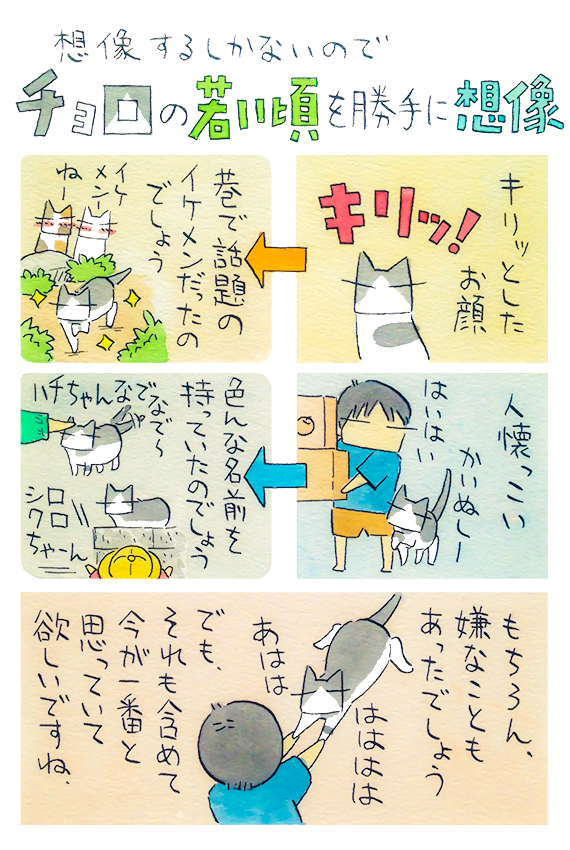 想像するしかないので
チョロの若い頃を勝手に想像
キリッとした
お顔
キリッ!
巷で話題の
イケメンだったの
でしょう
イケ
メンー
ねー
人懐っこい
かいぬしー
はいはい
色んな名前を
持っていたのでしょう
ハチちゃんなでなでら
シロ
クロ
ちゃーん
もちろん、
嫌なことも
あったでしょう
はははは
あはは
でも、
それも含めて
今が一番と
思っていて
欲しいですね。